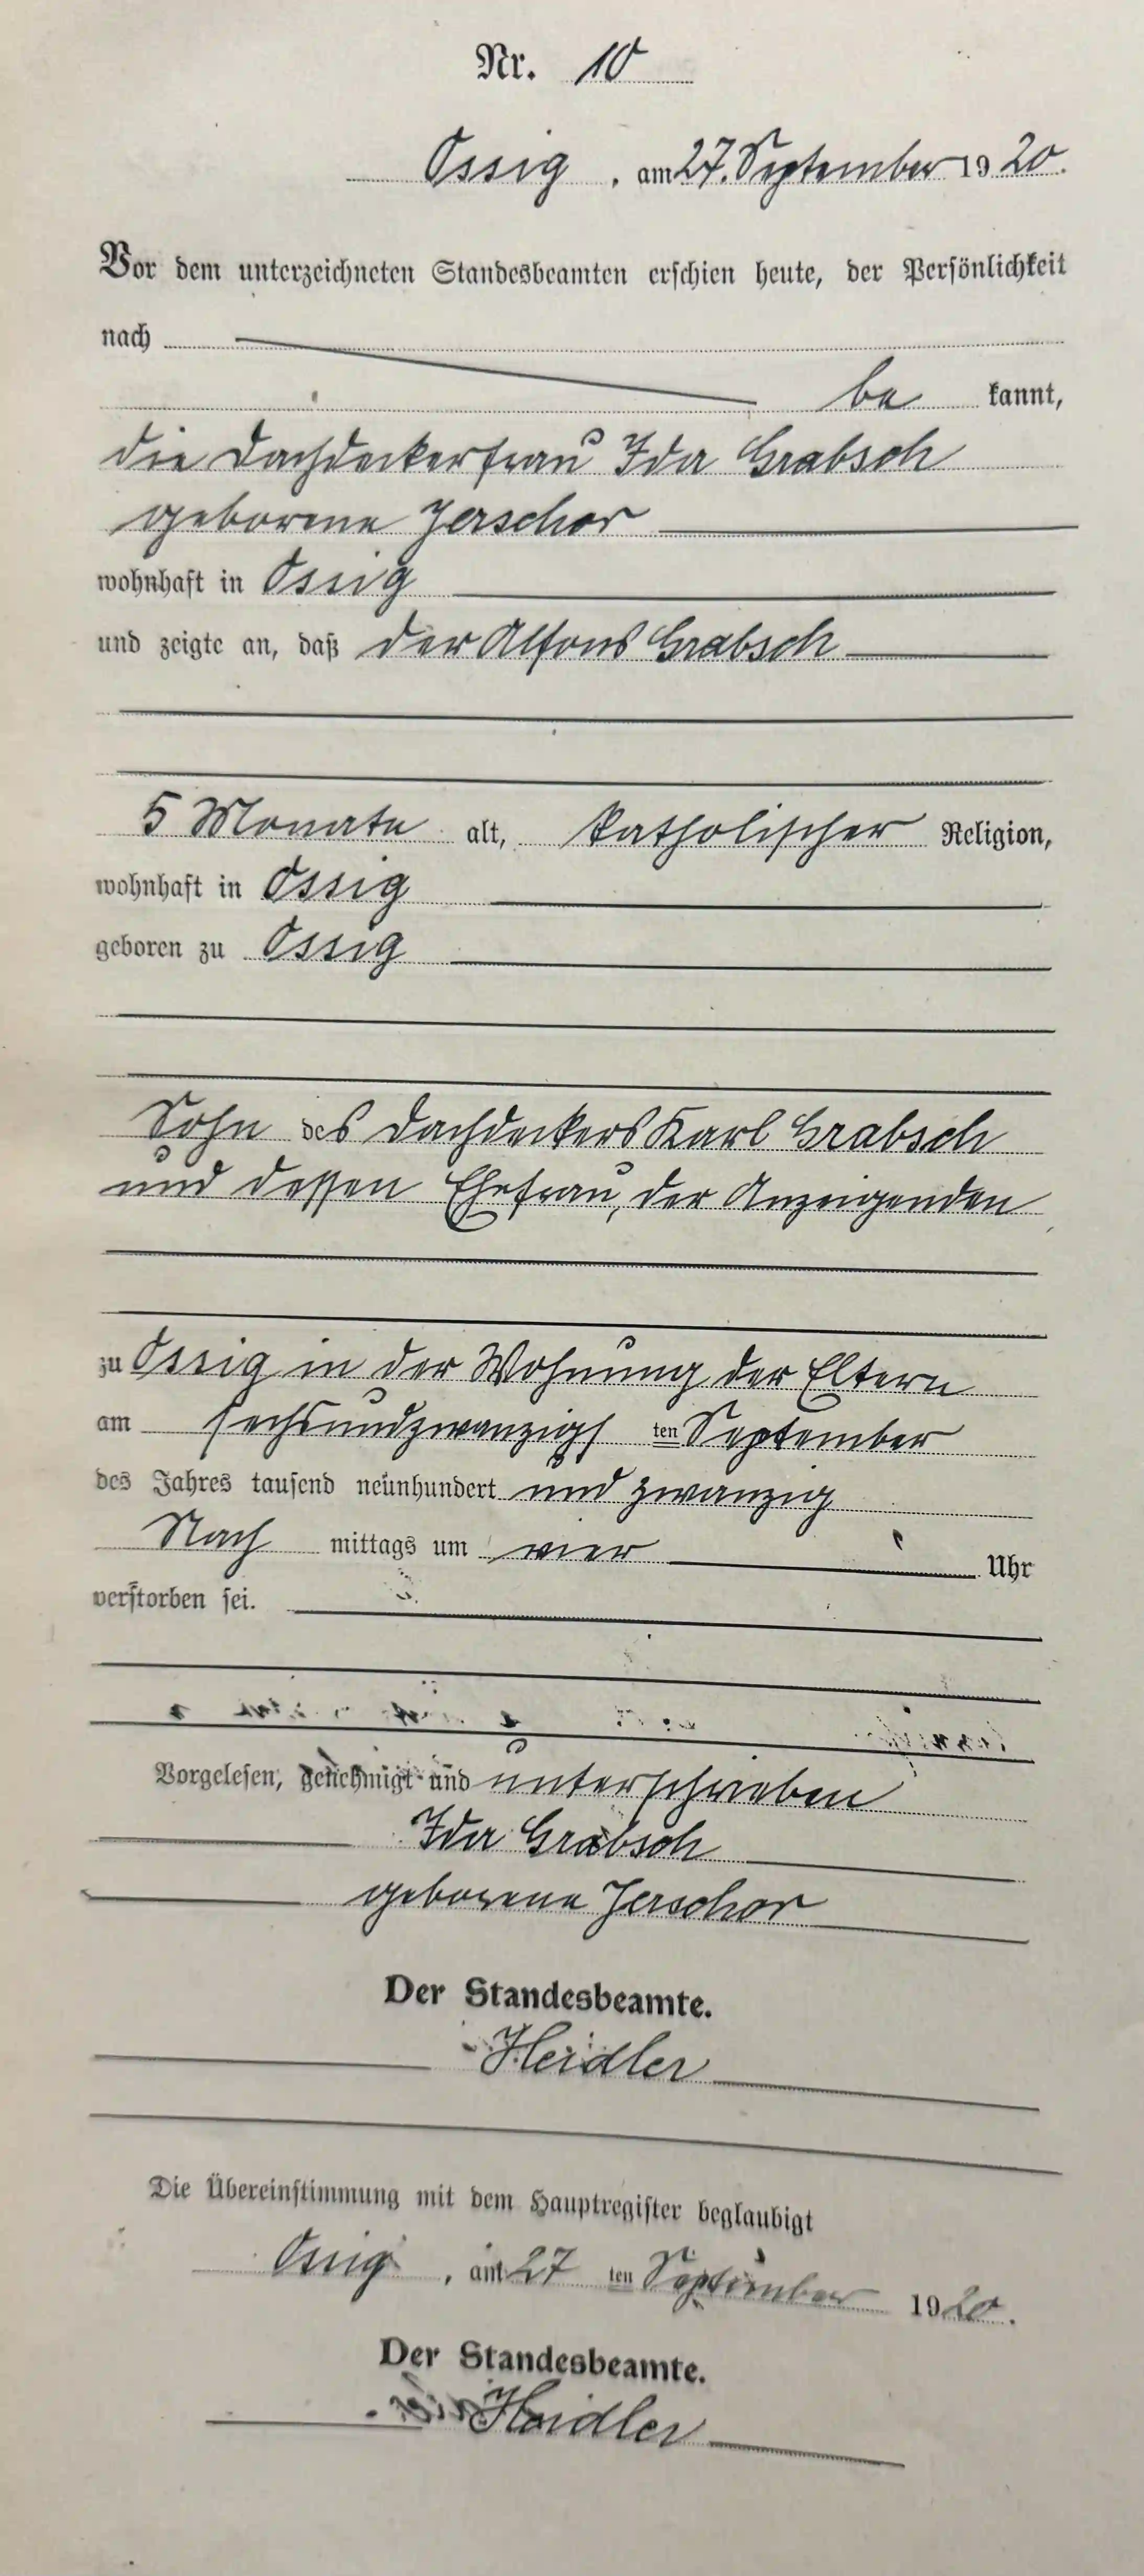 Nr. 10
Ossig, am 27. September 1920.
Vor dem unterzeichneten Standesbeamten erschien heute, der Persönlichkeit
nach
be kannt,
die Dachdeckerfrau Ida Grabsch
geborene Jerschor
wohnhaft in Ossig
und zeigte an, daß der Alfons Grabsch
5 Monate alt, katholischer Religion,
wohnhaft in Ossig
geboren zu Ossig
Sohn des Dachdeckers Karl Grabsch
und dessen Ehefrau, der Anzeigenden
zu Ossig in der Wohnung der Eltern
am sechsundzwanzigs ten September
des Jahres tausend neunhundert und zwanzig
Nach mittags um vier Uhr
verstorben sei.
Vorgelesen, genehmigt und unterschrieben
Ida Grabsch
geborene Jerschor
Der Standesbeamte.
Heidler
Die Übereinstimmung mit dem Hauptregister beglaubigt
Ossig, am 27 ten September 1920.
Der Standesbeamte.
Heidler